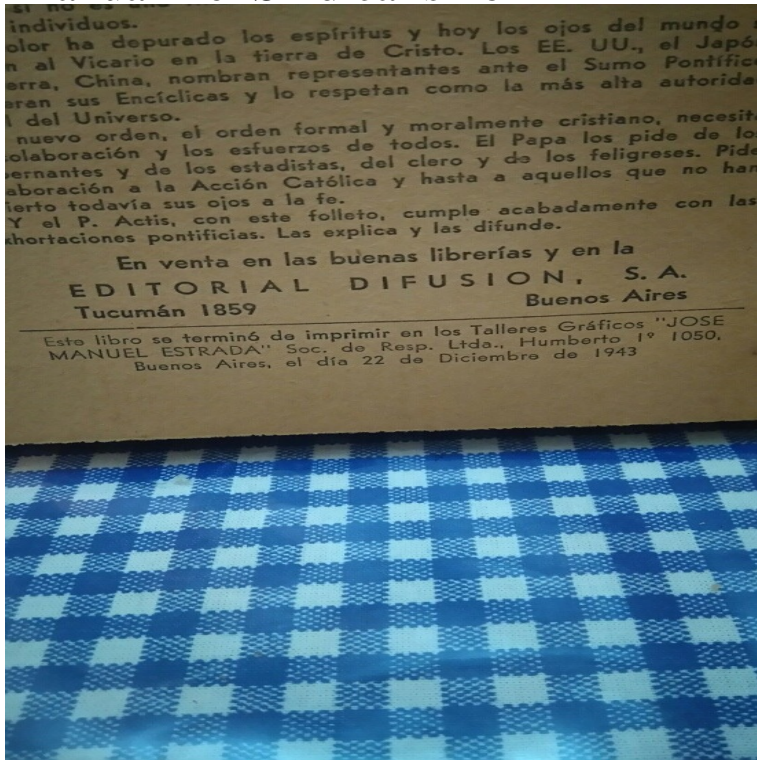 individuos.
olor ha depurado los espíritus y hoy los ojos del mundo
n al Vicario en la tierra de Cristo. Los EE. UU., el Japó
erra, China, nombran representantes ante el Sumo Pontífic
eran sus Encíclicas y lo respetan como la más alta autorida
l del Universo.
nuevo orden, el orden formal y moralmente cristiano, necesit
olaboración y los esfuerzos de todos. El Papa los pide de lo
ernantes y de los estadistas, del clero y de los feligreses. Pide
aboración a la Acción Católica y hasta a aquellos que no han
ierto todavía sus ojos a la fe.
Y el P. Actis, con este folleto, cumple acabadamente con las
xhortaciones pontificias. Las explica y las difunde.
En venta en las buenas librerías y en la
EDITORIAL DIFUSION, S. A.
Tucumán 1859 Buenos Aires
Este libro se terminó de imprimir en los Talleres Gráficos "JOSE
MANUEL ESTRADA" Soc. de Resp. Ltda., Humberto 1º 1050,
Buenos Aires, el día 22 de Diciembre de 1943